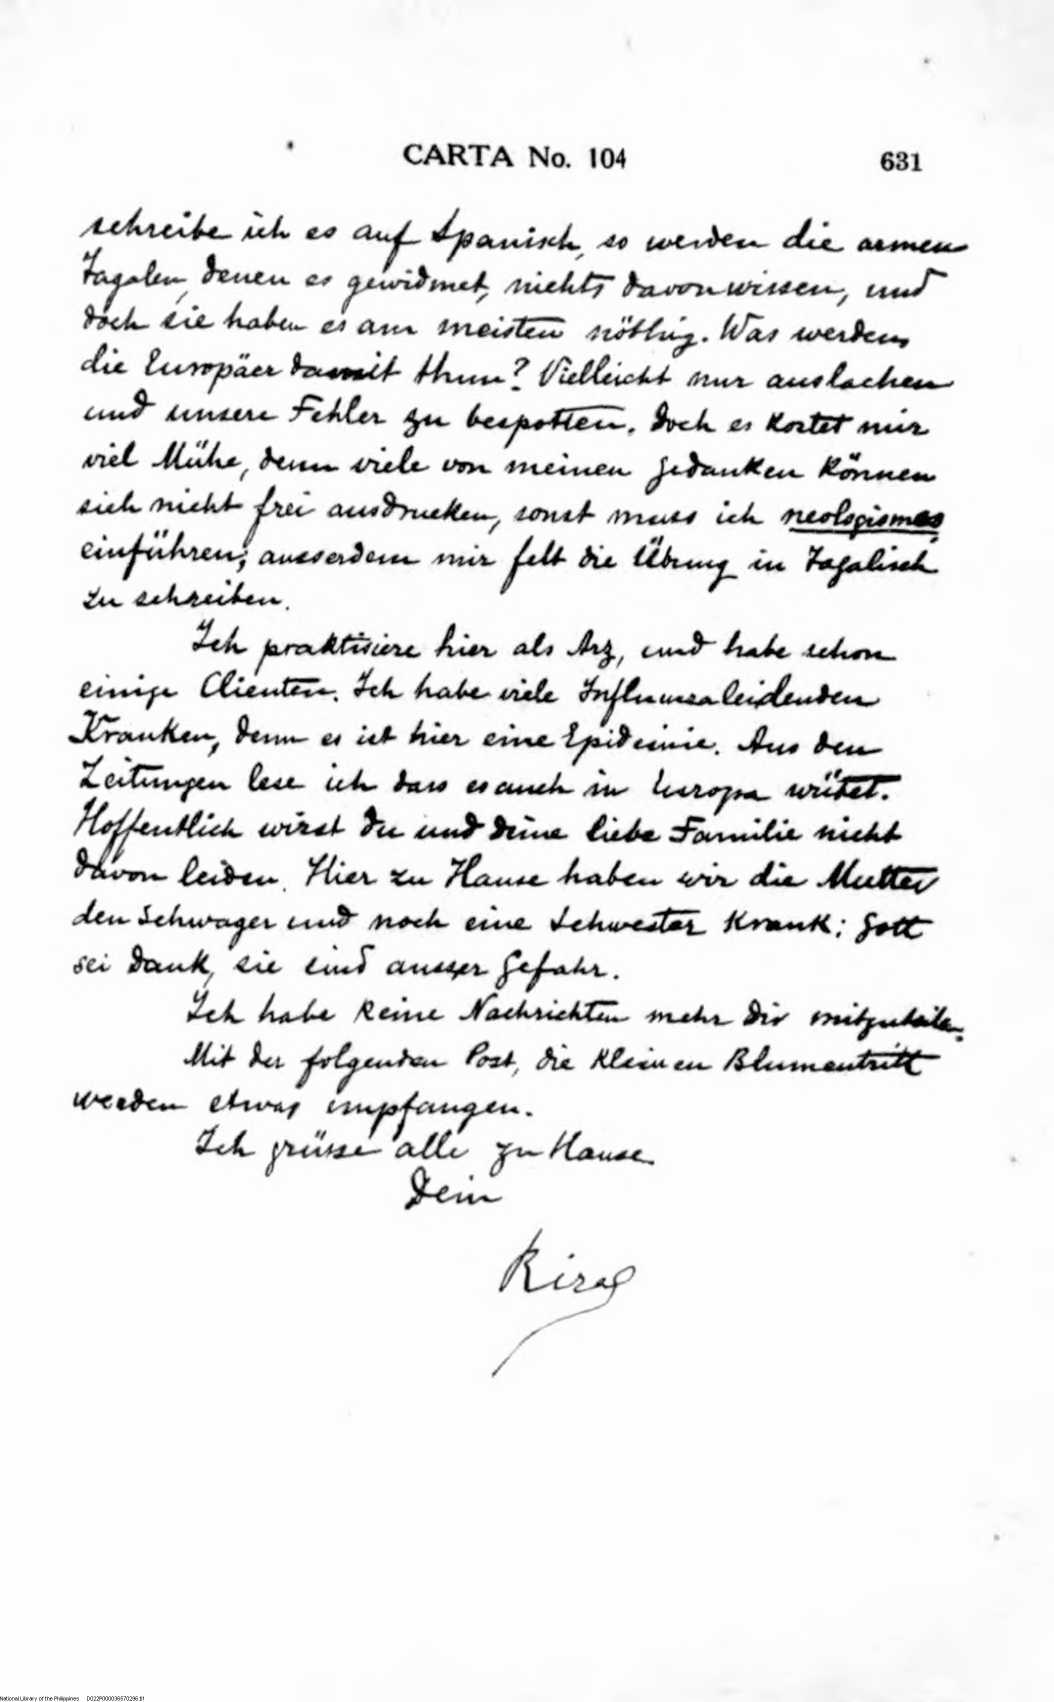 CARTA No. 104
631
schreibe ich es auf Spanisch, so werden die armen
Tagalen, denen es gewidmet, nichts davon wissen, und
doch sie haben es am meisten nöthig. Was werden
die Europäer damit thun? Vielleicht nur auslachen
und unsere Fehler zu bespotten. Doch es kostet mir
viel Mühe, denn viele von meinen Gedanken können
sich nicht frei ausdrucken, sonst muss ich neologismes
einführen; ausserdem mir felt die Übung in Tagalisch
zu schreiben.
Ich praktisiere hier als Arz, und habe schon
einige Clienten. Ich habe viele Influenzaleidenden
Kranken, denn es ist hier eine Epidemie. Aus den
Zeitungen lese ich dass es auch in Europa wütet.
Hoffentlich wirst du und deine liebe Familie nicht
davon leiden. Hier zu Hause haben wir die Mutter
den Schwager und noch eine Schwester krank; Gott
sei Dank, sie sind ausser Gefahr.
Ich habe keine Nachrichten mehr dir mitzuteilen.
Mit der folgenden Post, die kleinen Blumentritt
werden etwas empfangen.
Ich grüsse alle zu Hause
Dein
Rizal
National Library of the Philippines